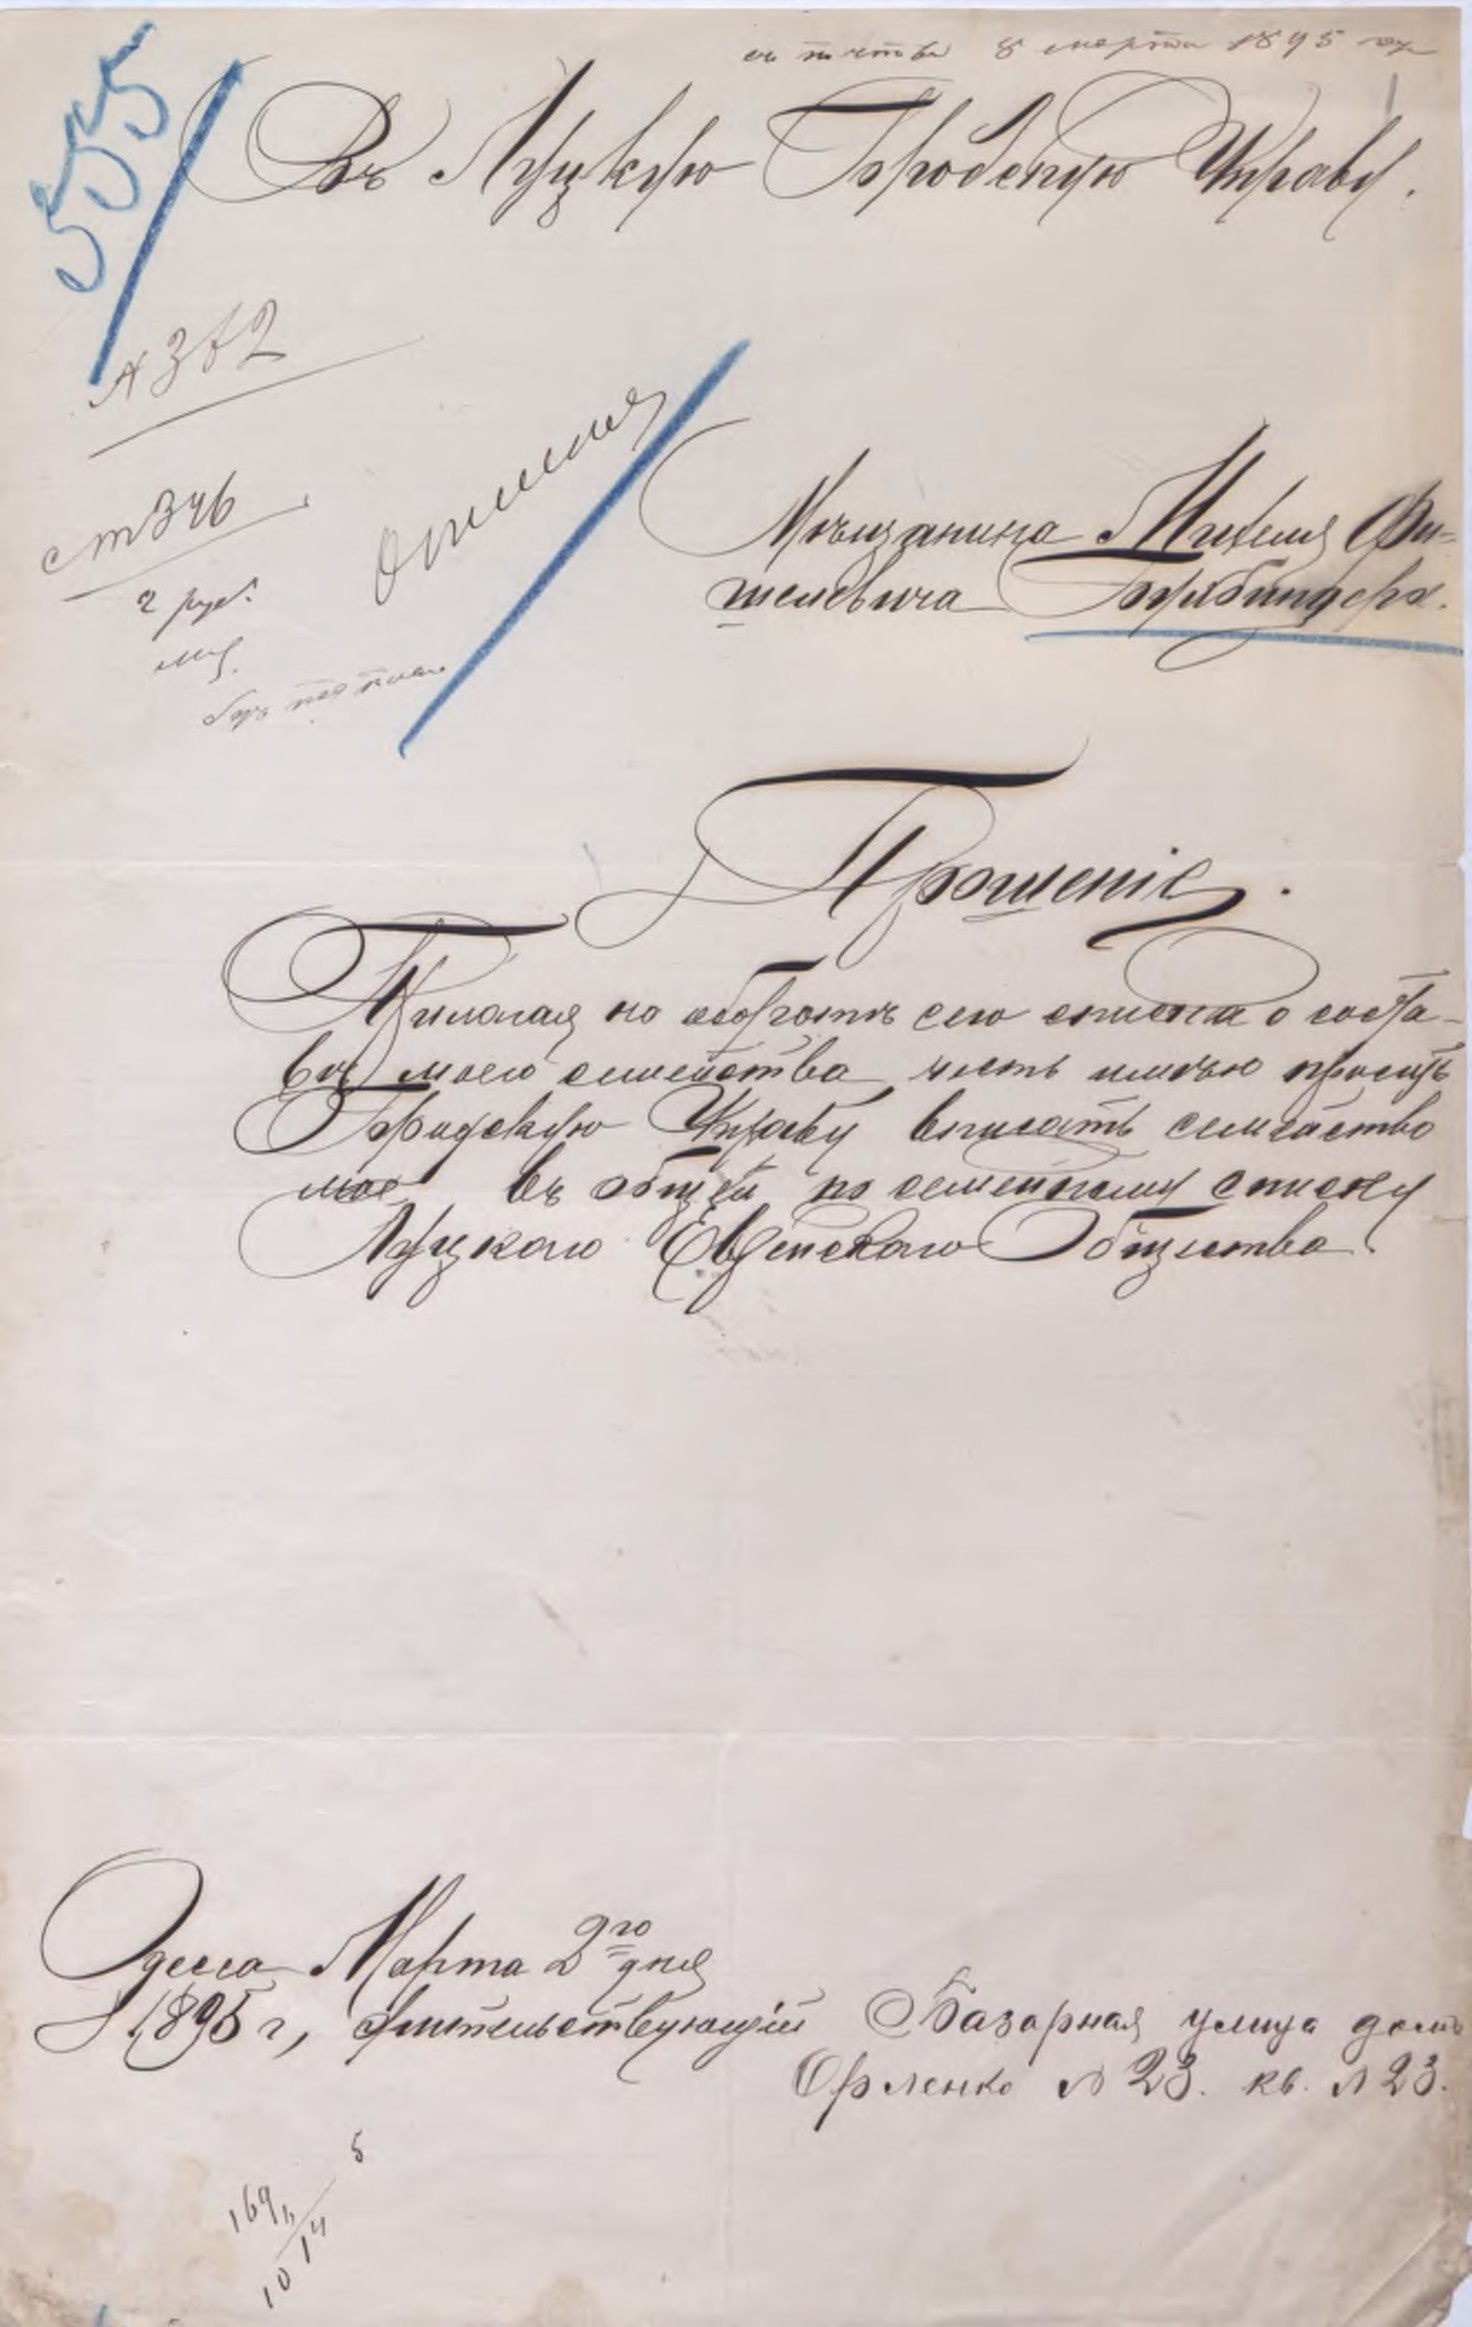 8 марта 1895
555
Въ Луцкую Городскую Управу.
№ 372
ст 346
2 руб.
Мѣщанина Михеля Фи-
шелевича
Прошеніе.
Прилагая на оборотѣ сего списка о соста-
вѣ моего семейства, честь имѣю просить
Городскую Управу вписать семейство
мое въ общей по семейному списку
Луцкаго Еврейскаго Общества.
Одесса Марта 2го дня
1895 г, жительствующій Базарная улица домъ
Орленко № 23. кв. № 23.
5
169
10 14